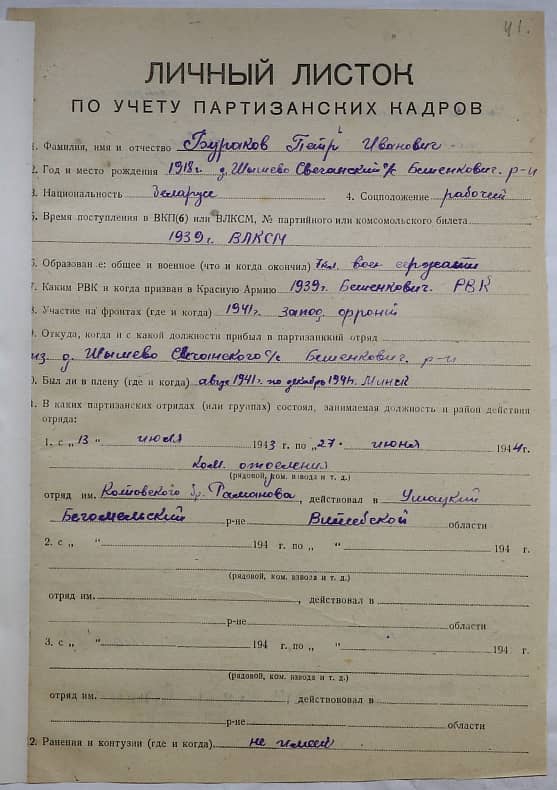 41.
ЛИЧНЫЙ ЛИСТОК
ПО УЧЕТУ ПАРТИЗАНСКИХ КАДРОВ
1. Фамилия, имя и отчество Бураков Пётр Иванович
2. Год и место рождения 1918г. д. Шышево Свечанский с/с Бешенкович. р-н
3. Национальность беларус 4. Соцположение рабочий
5. Время поступления в ВКП(б) или ВЛКСМ, № партийного или комсомольского билета
1939г. ВЛКСМ
6. Образован е: общее и военное (что и когда окончил) 7кл. воен
7. Каким РВК и когда призван в Красную Армию 1939г. Бешенкович. РВК
8. Участие на фронтах (где и когда) 1941г. Запад. фронт
9. Откуда, когда и с какой должности прибыл в партизанский отряд
из д. Шышево Свечанского с/с Бешенкович. р-н
0. Был ли в плену (где и когда) август 1941г. по декабрь 1941г. Минск
1. В каких партизанских отрядах (или группах) состоял, занимаемая должность и район действия
отряда:
1. с „ 13 " июля 1943 г. по „ 27 " июня 1944г.
ком. отделения
(рядовой, ком. взвода и т. д.)
отряд им. Котовского бр. Романова, действовал в Ушацкий
Бегомельский р-не Витебской области
2. с „ " 194 г. по „ " 194 г.
(рядовой, ком. взвода и т. д.)
отряд им. , действовал в
р-не области
3. с „ " 194 г. по „ " 194 г.
(рядовой, ком. взвода и т. д.)
отряд им. , действовал в
р-не области
2. Ранения и контузии (где и когда) не имеет